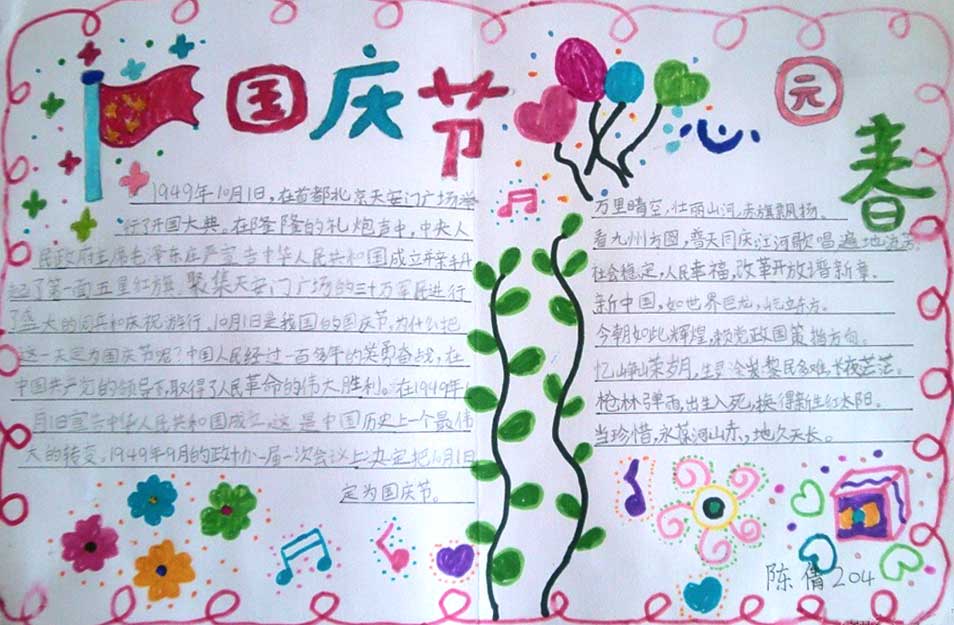 国庆节
1949年10月1日，在首都北京天安门广场举
行了开国大典，在隆隆的礼炮声中，中央人
民政府主席毛泽东庄严宣告中华人民共和国成立并亲手升
起了第一面五星红旗。聚集天安门广场的三十万军民进行
了盛大的阅兵和庆祝游行。10月1日是我国的国庆节，为什么把
这一天定为国庆节呢？中国人民经过一百多年的英勇奋战，在
中国共产党的领导下，取得了人民革命的伟大胜利。在1949年1
月1日宣告中华人民共和国成立，这是中国历史上一个最伟
大的转变。1949年9月的政协一届一次会议上决定把10月1日
定为国庆节。
心园春
万里晴空，壮丽山河，赤旗飘扬。
看九州方圆，普天同庆，江河歌唱遍地流芳
社会稳定，人民幸福，改革开放谱新章。
新中国，如世界巨龙，屹立东方。
今朝如此辉煌，赖党政国策挡方向。
忆峥嵘岁月，黎民多难，长夜茫茫。
枪林弹雨，出生入死，换得新生红太阳。
当珍惜，永葆河山赤，地久天长。
陈倩204